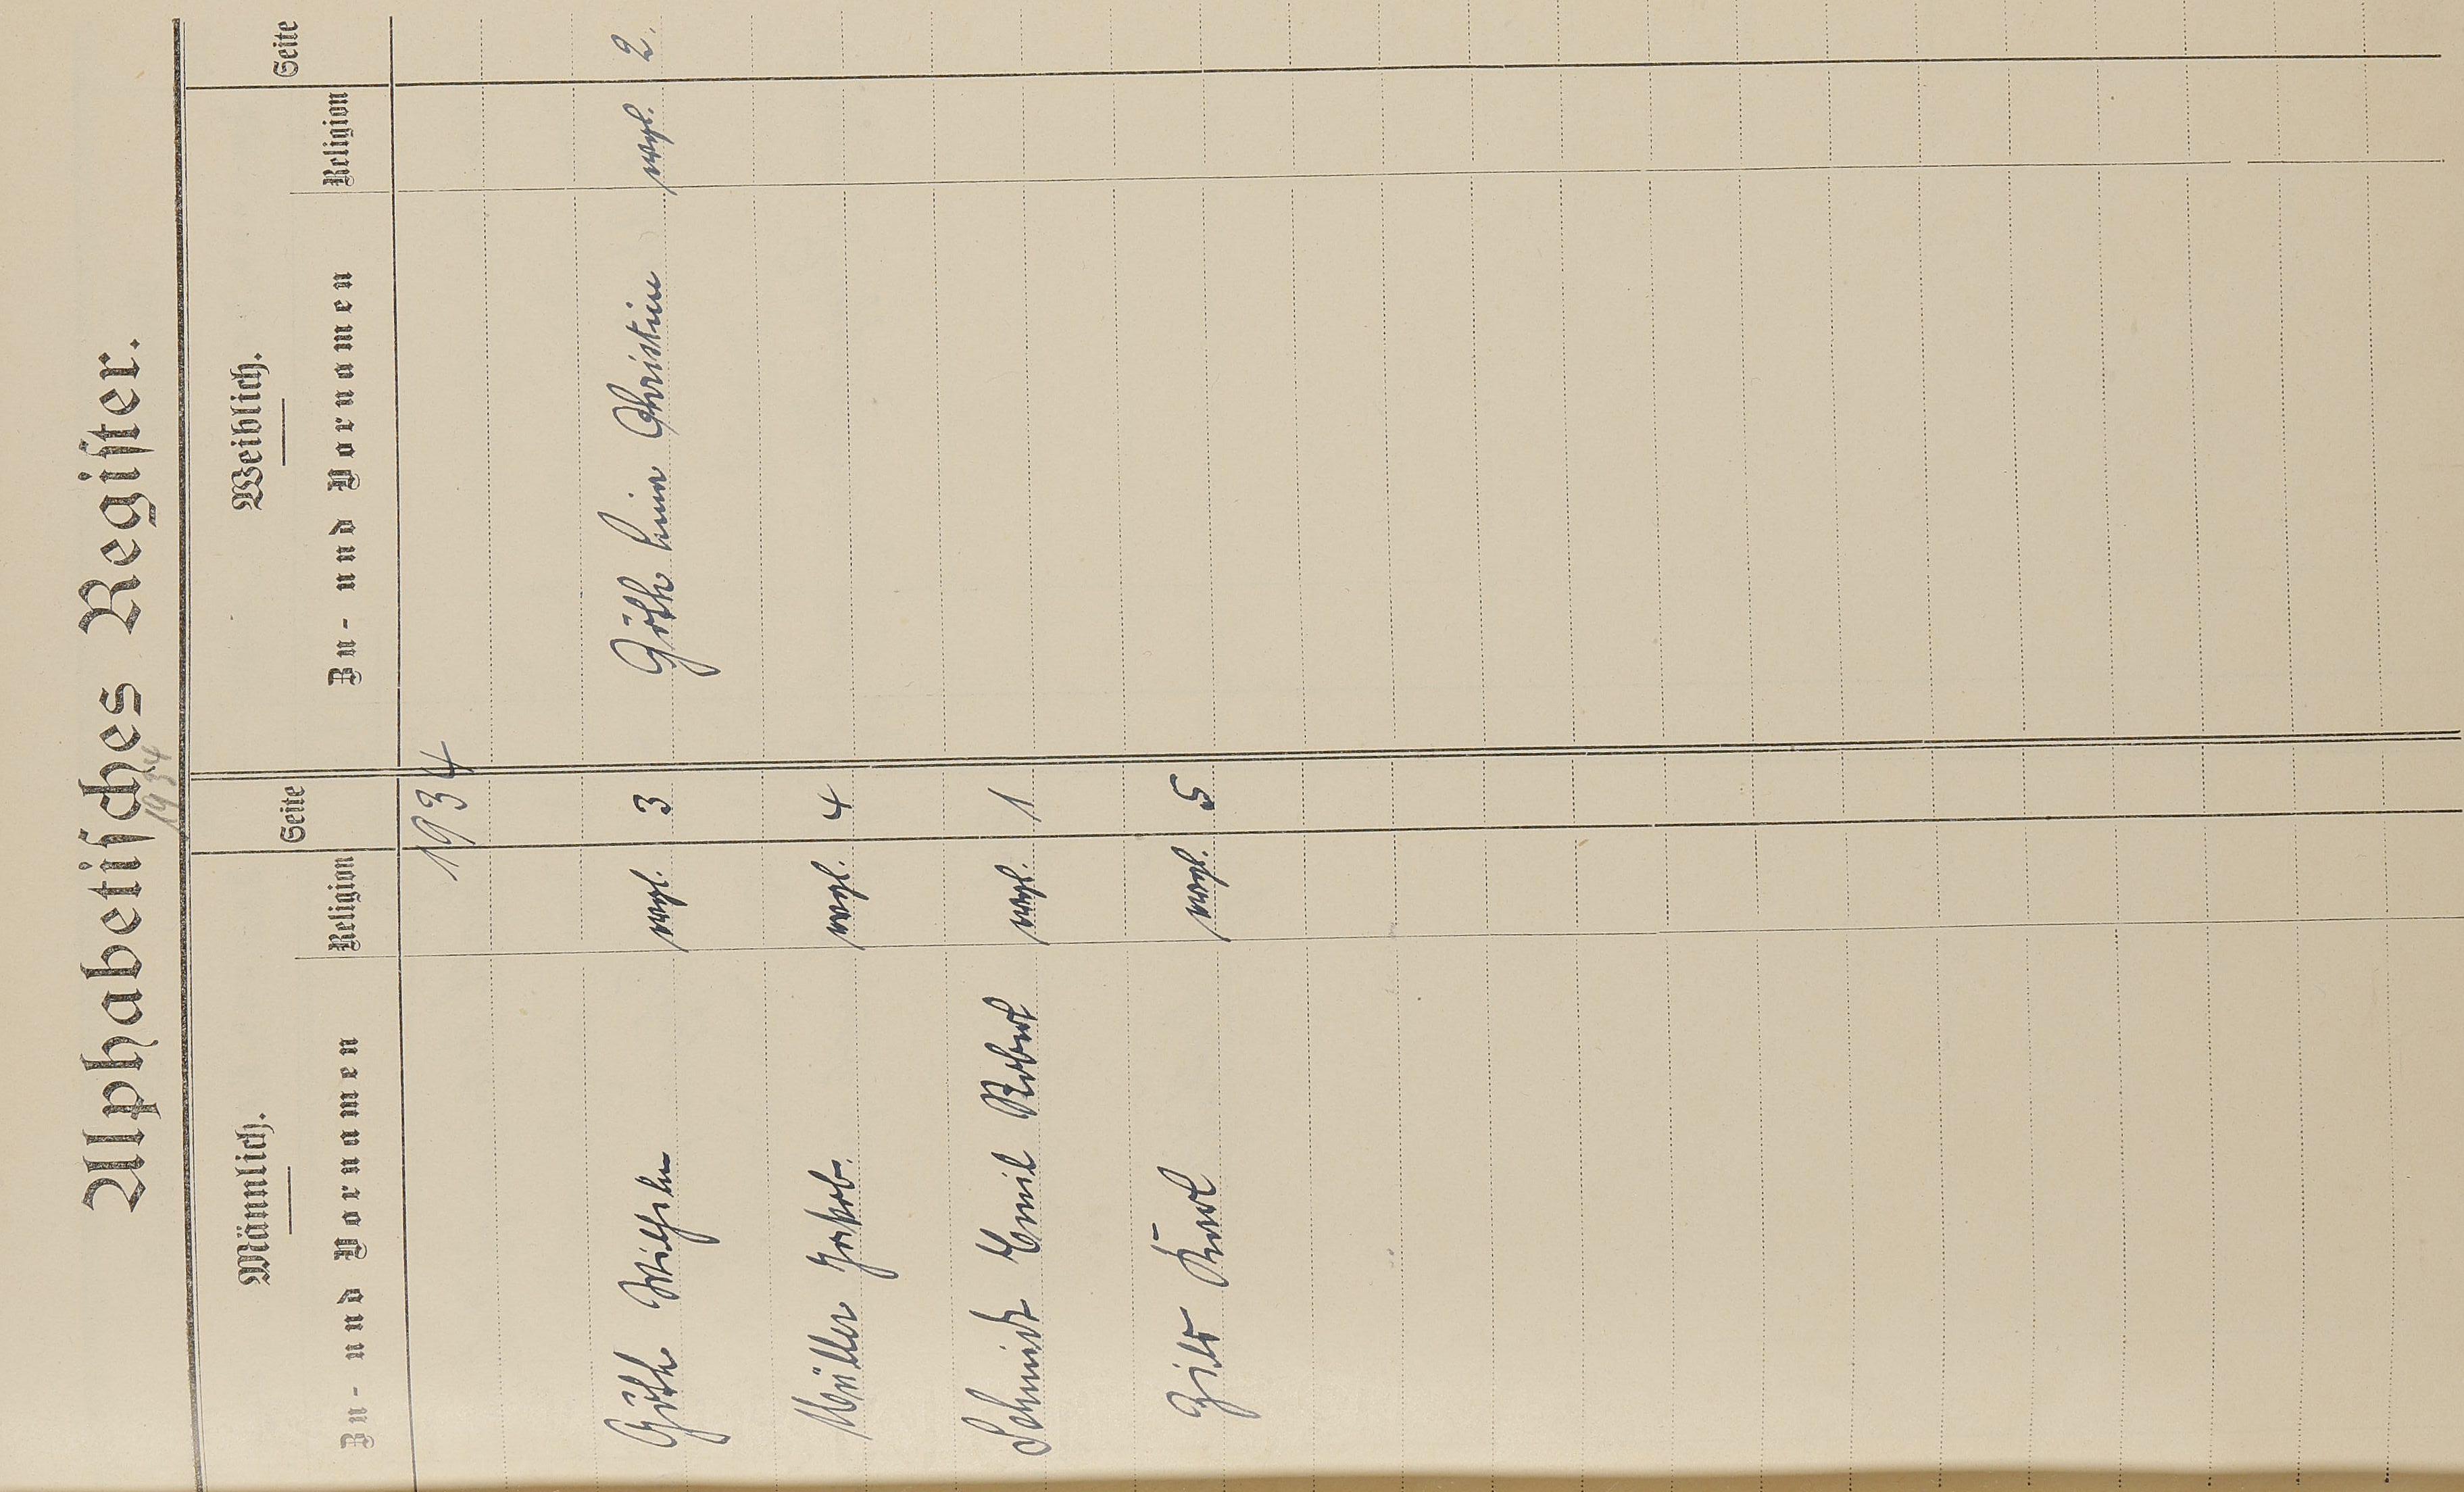 Alphabetiſches Regiſter.
1934
Männlich. Seite Weiblich. Seite
Zu- und Vornamen Religion Zu- und Vornamen Religion
1934
Güth Wilhelm evgl. 3 Güth Lina Christine evgl. 2.
Müller Jakob. evgl. 4
Schmidt Emil Robert evgl. 1
Karl evgl. 5